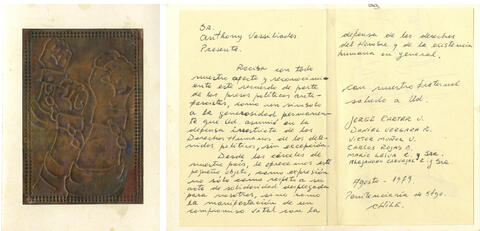 SR.
Anthony Vassiliades
Presente.
Reciba con todo
nuestro afecto y reconocimien
este recuerdo de parte
de los presos políticos
como un símbolo
a la generosidad permanen
te que Ud. asumió en la
defensa irrestricta de
los Derechos Humanos de los de
tenidos políticos, sin excepción.
Desde las cárceles de
nuestro país, le ofrecemos este
pequeño objeto, como expresión
no sólo como respeto a su
acto de solidaridad desplegado
para nosotros, sino como
la manifestación de un
compromiso vital con la
defensa de los derechos
del Hombre y de la existencia
humana en general.
Con nuestro fraternal
saludo a Ud.
JORGE V.
DANIEL VERGARA R.
VICTOR MUÑOZ U.
CARLOS ROJAS
MARIO
ALEJANDRO
Agosto - 1989
Penitenciaría de Stgo.
CHILE.